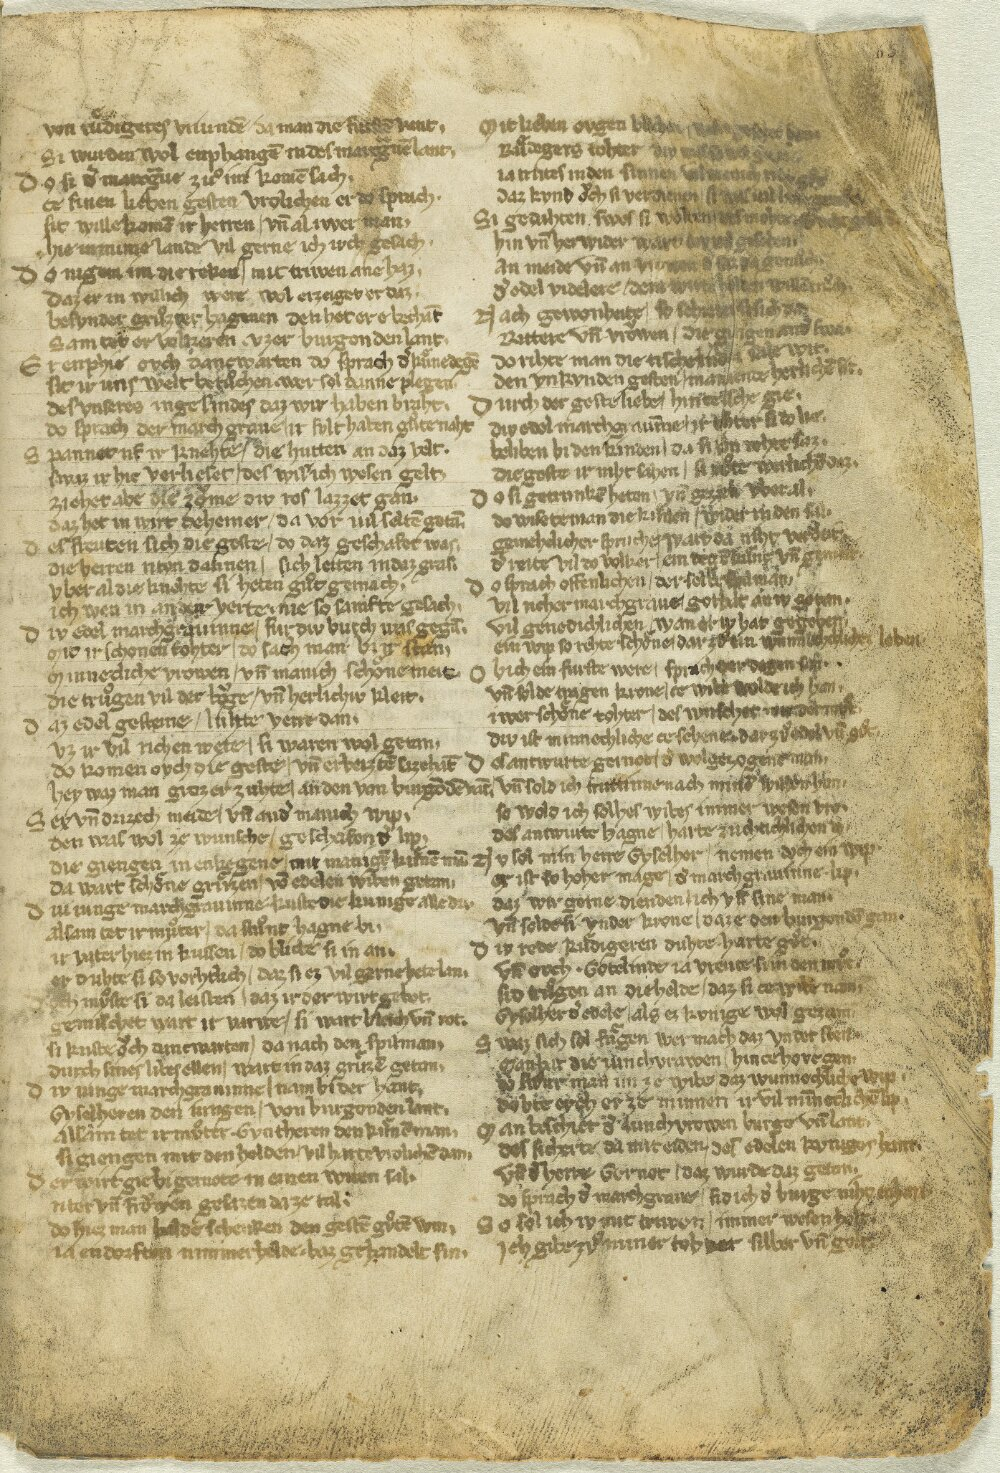 von růdigeres vriunde da man die
Si wurden wol enphangē in des maregͣuē lant.
Do si ď maregͣue zů im komē sach.
ce sinen lieben gesten vrolichen er do sprach.
sit willekomē ir herren / vñ al iwer man.
hie in mime lande vil gerne ich iuch gesach.
Do nigen im die reken / mit triwen ane haz.
Daz er in willich were / wol erzeiget er daz.
besunder grůzt er hagenen den het er e bechāt
Sam tet er volkeren vzer burgonden lant.
Er enphie ovch dancwarten do sprach ď kůnedegē
sit ir uns welt beruͦchen wer sol danne plegen.
des vnseres ingesindes daz wir haben braht.
do sprach der march graue / ir sult haben gůte naht
Spannet uf ir knehte / die hutten an daz velt.
swaz ir hie verlieset / des wil ich wesen gelt.
ziehet abe die zǒme div ros lazzet gan.
daz het in wirt deheiner / da vor vil selten getā.
Des freuten sich die geste / do daz geschaft was.
die herren riten dannen / sich leiten in daz gras.
vber al die knehte si heten gůt gemach.
ich wen in an der verte nie so sanfte geschach.
Div edel marchgrauinne / fur div burch was gegā.
mit ir schonen tohter / do sach man bi ir stan.
minnecliche vrowen / vñ manich schǒne meit
die truͦgen vil der bǒge / vñ herlichiv kleit.
Daz edel gesteine / luhte verre dan.
vz ir vil richen wete / si waren wol getan.
do komen ovch die geste / vñ erbeizten sazehāt
hey waz man grozer zuhte / an den von burgōdē vāt.
Sex vñ drizech meide / vñ anď manich wip.
den was wol ze wunsche / geschaffen ď lip.
die giengen in enkegene / mit manigē kůnē mā
da wart schǒne grůzen / vō edelen wiben getan.
Div iunge marchgrauinne kuste die kunige alle dri.
alsam tet ir můter / da stůnt hagne bi.
ir vater hiez in kussen / do blicte si in an.
er duhte si so vorhtlich / daz si ez vil gerne hete lan.
Doch můste si da leisten / daz ir der wirt gebot.
gemischet wart ir varwe / si wart bleich vñ rot.
si kuste ǒch dancwarten / da nach den spilman.
durch sines libes ellen / wart in daz grůzē getan.
Div iunge marchgrauinne / nam bi der hant.
Gyselheren den iungen / von burgonden lant.
Alsam tet ir můter Gyntheren den kůnē man.
si giengen mit den helden / vil harte vrolichē dan.
Der wirt gie bi gernote in einen witen sal.
riter vñ vrowen gesazen da ze tal.
do hiez man balde schenken den gestē gůtē win.
ia en dorften nimmer helde baz gehandelt sin.
Mit lieben ovgen
Rudegers tohter div
ia trutes in den sinnen
daz kynd ǒch si verdienen
Si gedahten swes si wolten
hin vñ her wider wart
An meide vñ an vrowen
ď edel videlere / dem wirte
Nach gewonheite / so schieden si sich da.
Rittere vñ vrowen / die giengen anď swa.
do rihte man die tische in dem sale wit.
den vnkvnden gesten / man diente herliche sit.
Durch der geste liebe / hin ze tische gie.
div edel marchgrauinne / ir tohter si do lie.
beliben bi den kinden / da si von rehte saz.
die geste ir niht sahen / si
Do si getrunkē heten / vñ gezzen vber al.
do wiste man die schonen / wider in den sal.
gemelicher spruche / wart da niht verdeit.
ď reite vil do volker / ein degē kůne vñ gemeit
Do sprach offenlichen / der selbe spilman.
vil richer marchgraue / got hat an iv getan.
vil genedichlichen / wan er iv hat gegeben.
ein wip so rehte schǒne / dar zů ein wunnechlichez leben
Ob ich ein furste were / sprach der degen san.
vñ solde tragen krone / ce wibe wolde ich han.
iwer schǒne tohter / des wunschet mir der můt.
div ist minnechliche ce sehene / dar zů edel vñ gůt.
Des antwurte gernot / ď wolgezogene man.
vñ sold ich triutinne nach mime willen han.
so wold ich solhes wibes immer wesen vro.
des antwurte hagne / harte zuchtichlichen do
Nv sol min herre Gyselher / nemen doch ein wip
ez ist so hoher mage / ď marchgrauinne lip.
daz wir gerne dienden / ich vñ sine man.
vñ solde si vnder krone / da ze den burgondē gan.
Div rede Rudigeren duhte harte gůt.
vñ ovch Gotelinde ia vreute si in den můt.
sit trůgen an die helde / daz si ce wibe nam.
Gyselher ď edele / als ez kvnige wol gezam.
Swaz sich sol fůgen wer mach daz vnder sten.
man bat die iunchvrowen / hin ce hove gen.
do swůr man im ze wibe daz wunnechliche wip.
do lobte ovch er ze minnen ir vil minneclichē lip.
Man beschiet ď iunchvrowen burge vñ lant.
des sicherte da mit eiden / des edelen kvniges hant.
vñ ď herre Gernot / daz wurde daz getan.
do sprach ď marchgraue / sid ich ď burge niht enhan
So sol ich iv mit triwen / immer wesen holt.
Ich gibe zů miner tohter silber vñ golt